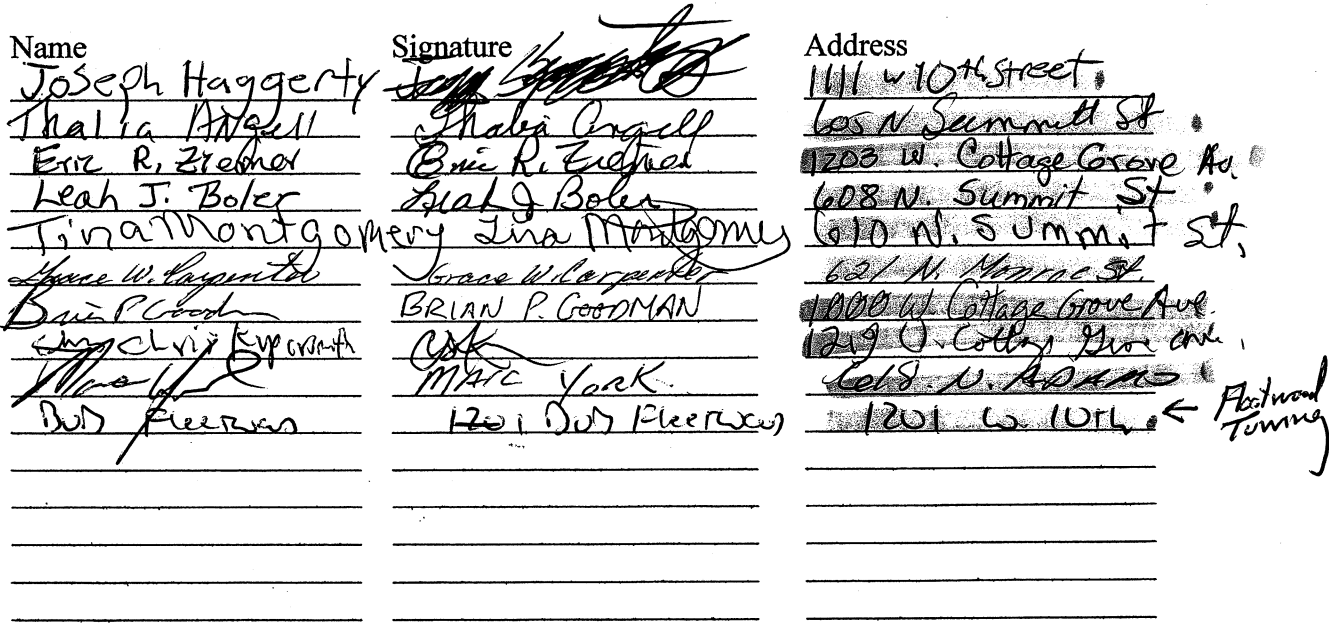 Name Signature Address
Joseph Haggerty 1111 w 10th street
Thalia Angell Thalia Angell 605 N Summitt St
Eric R. Ziemer Eric R. Ziemer 1203 W. Cottage Grove Av.
Leah J. Boler Leah J Boler 608 N. Summit St
Tina Montgomery Tina Montgomery 610 N. Summit St,
Grace W. Carpenter Grace W. Carpenter 621 N. Monroe St.
Brian P Goodman BRIAN P. GOODMAN 1000 W Cottage Grove Ave.
Chris 1219 W. Cottage Grove ave.
MARC YORK. 618. N. ADAMS
Bob Fleetwood 1201 Bob Fleetwood 1201 W. 10th. ← Fleetwood
Towing